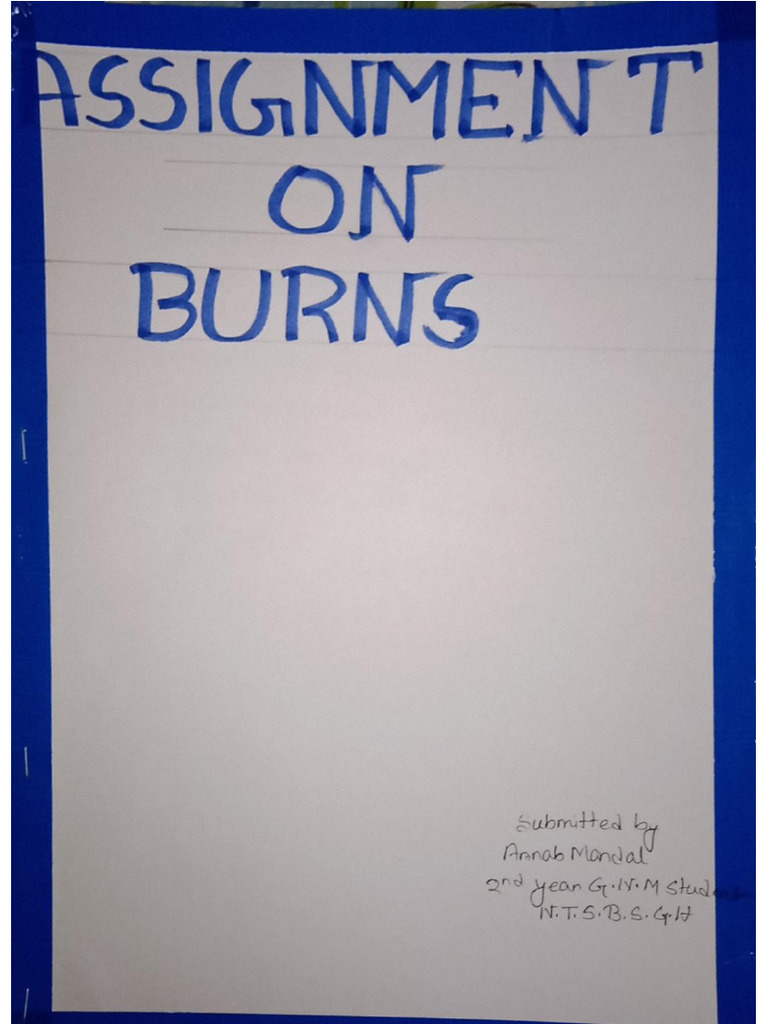 ASSIGNMENT
ON
BURNS
Submitted by
Arnab Mandal
2nd year G.N.M Student
N.T.S.B.S.G.H